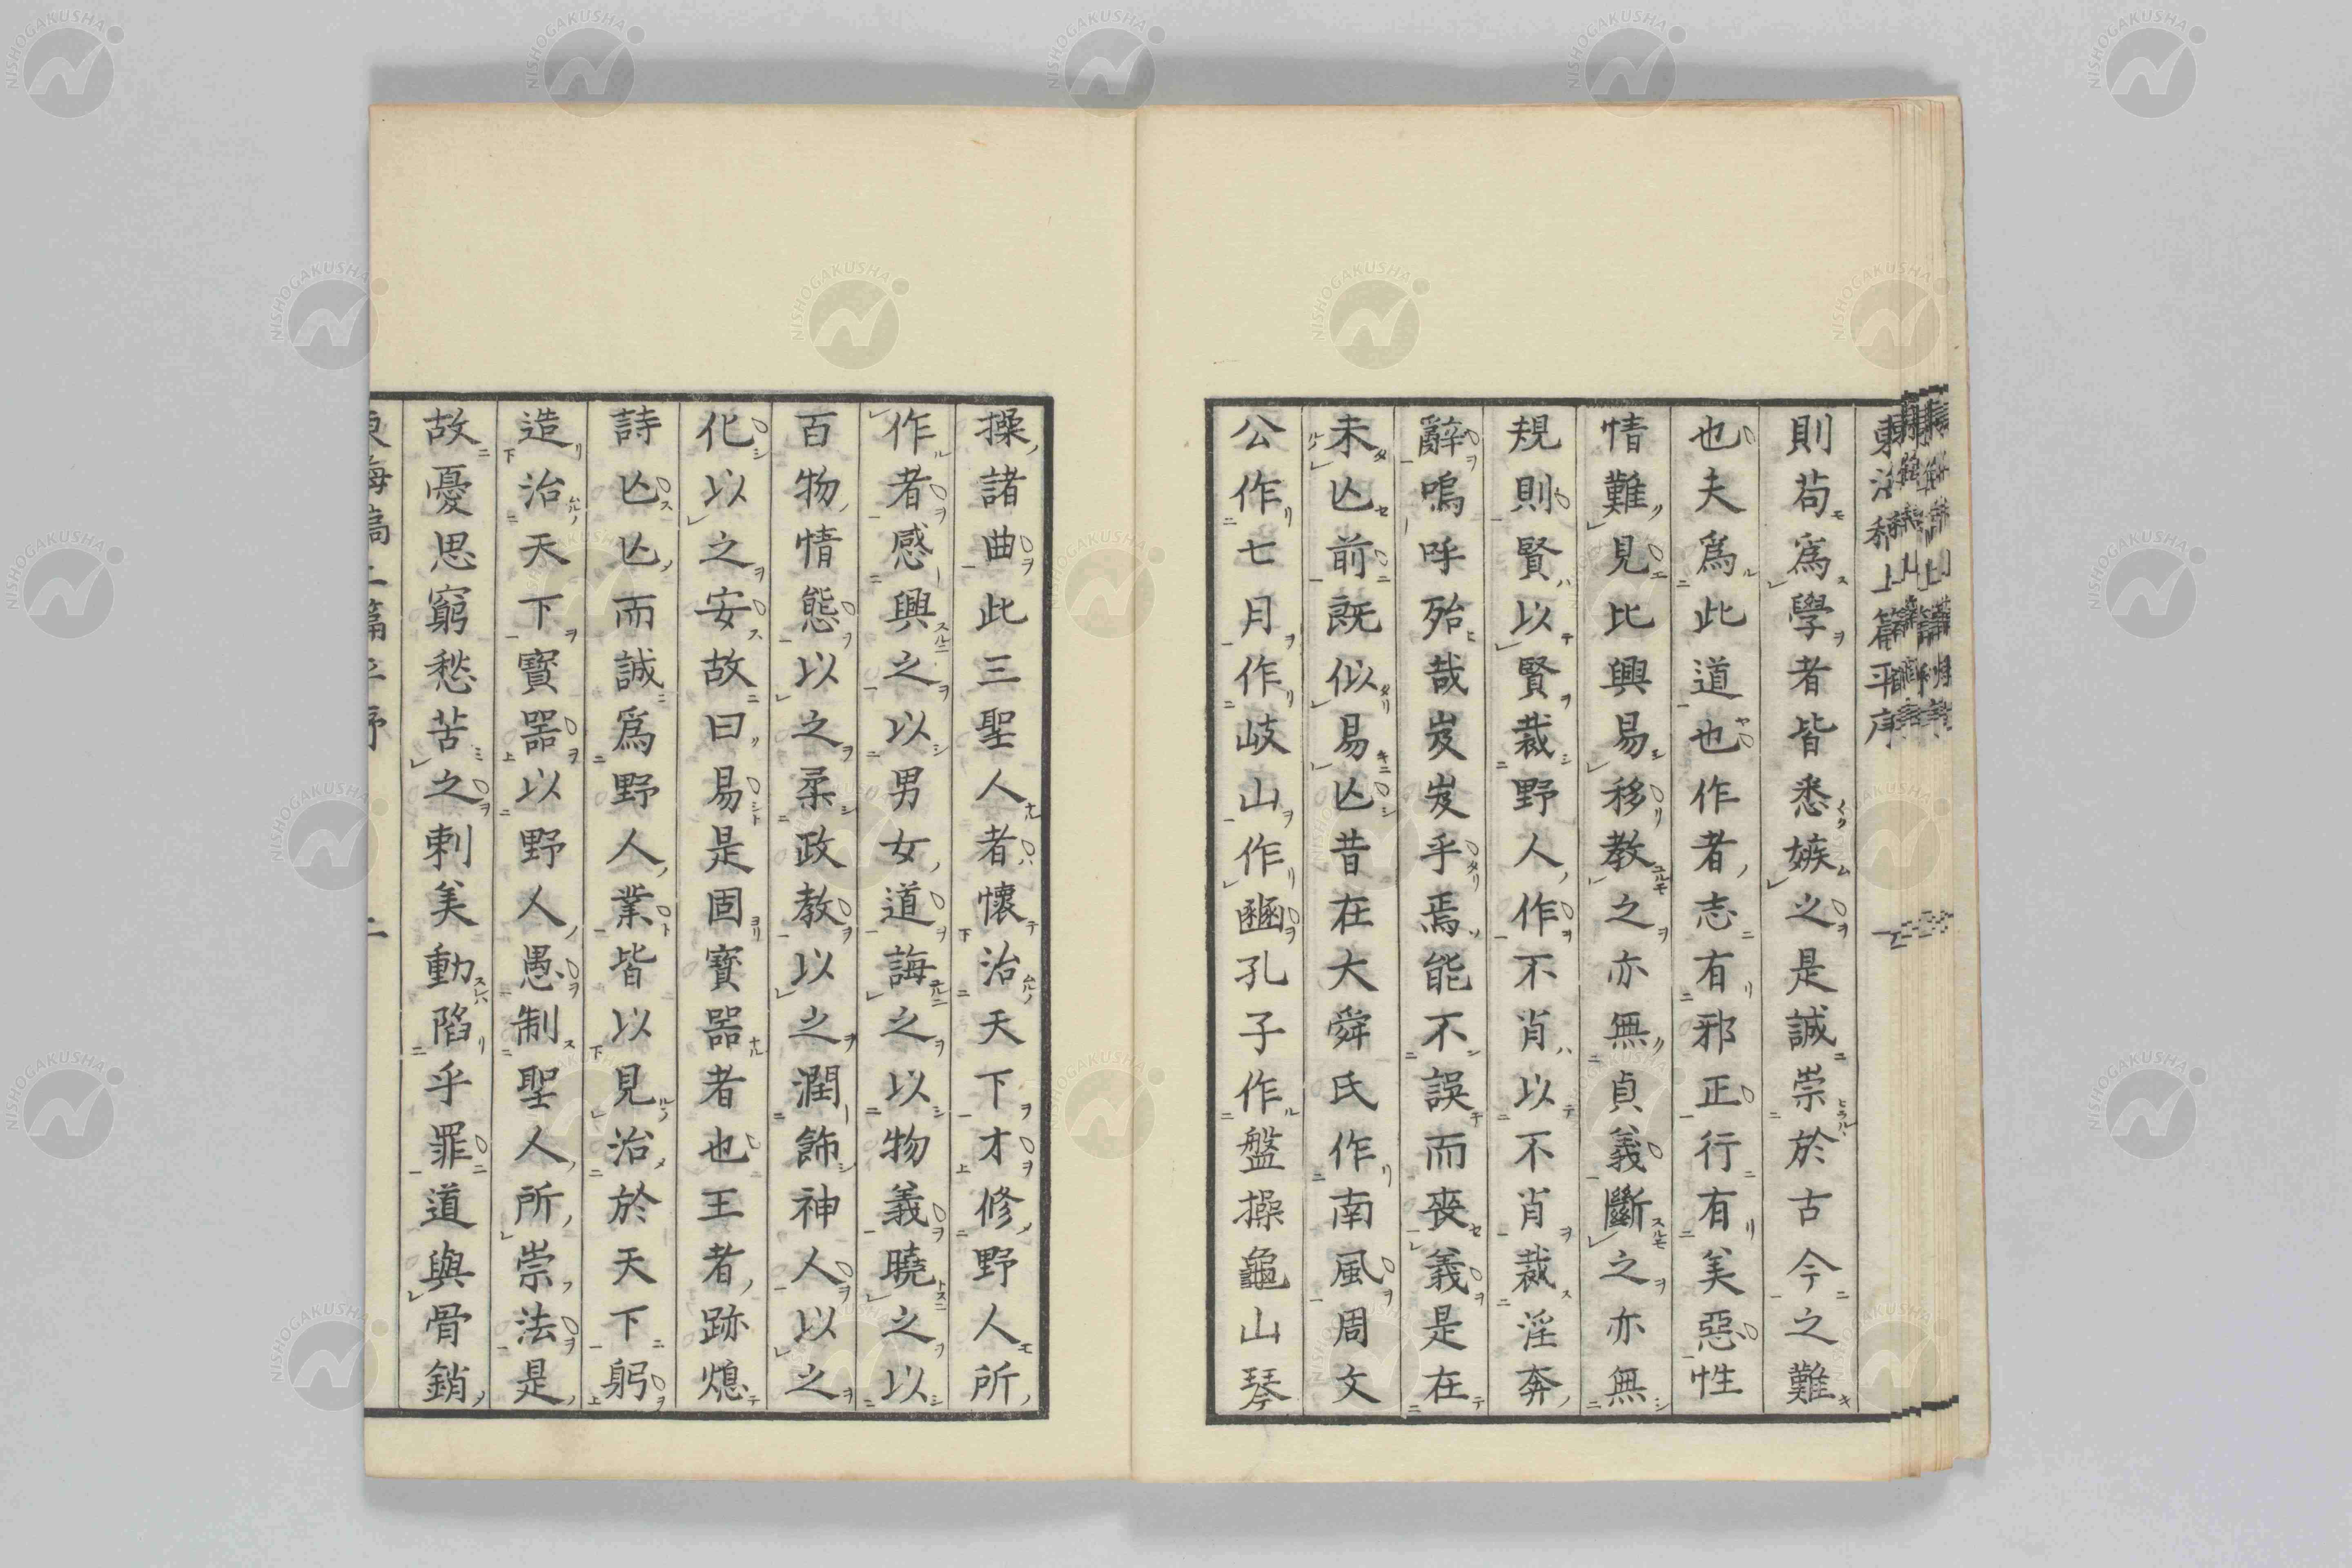 則苟爲學者皆悉嫉之是誠崇於古今之難
也夫爲此道也作者志有邪正行有美惡性
情難見比興易移教之亦無貞義斷之亦無
規則賢以賢裁野人作不肖以不肖裁淫奔
辭嗚呼殆哉岌岌乎焉能不誤而喪義是在
未亾前既似易亾昔在大舜氏作南風周文
公作七月作岐山作豳孔子作盤操龜山琴
操諸曲此三聖人者懷治天下才修野人所
作者感興之以男女道誨之以物義曉之以
百物情態以之柔政教以之潤飾神人以之
化以之安故曰易是固寶器者也王者跡熄
詩亾亾而誠爲野人業皆以見治於天下躬
造治天下寶器以野人愚制聖人所崇法是
故憂思窮愁苦之刺美動陷乎罪道與骨銷
NISHOGAKUSHA